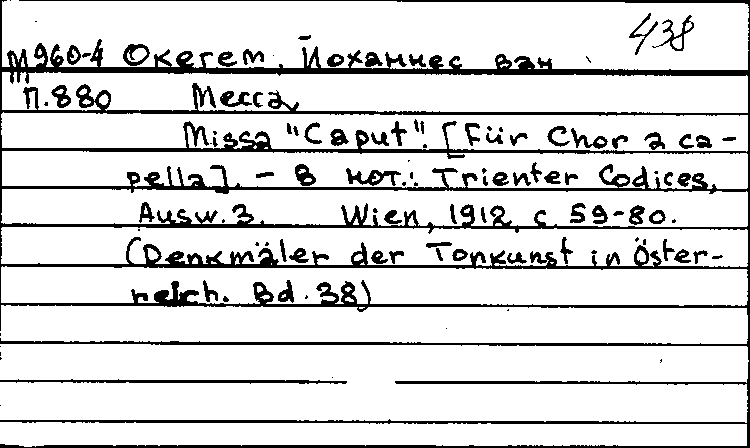 438
М960-4 Окегем, Йоханнес ван
П.880 Месса
Missa "Caput". [Für Chor a ca-
pella]. – В нот.: Trienter Codices,
Ausw. 3. Wien, 1912, с 59-80.
(Denkmäler der Tonkunst in Öster-
reich. Bd. 38)